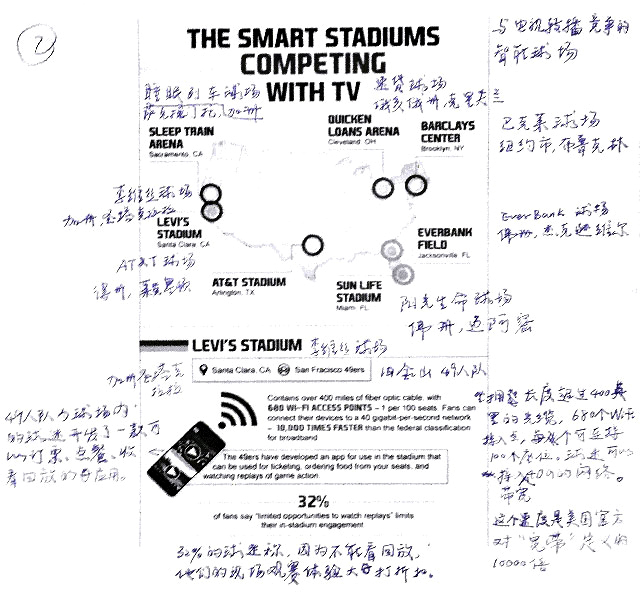 2
THE SMART STADIUMS
COMPETING
WITH TV
与电视转播竞争的
智能球场
睡眠列车球场
萨克拉门托, 加州
速贷球场
俄亥俄州,克里夫兰
SLEEP TRAIN
ARENA
Sacramento, CA
QUICKEN
LOANS ARENA
Cleveland, OH
BARCLAYS
CENTER
Brooklyn, NY
巴克莱球场
纽约市,布鲁克林
李维丝球场
加州,圣塔克拉拉
LEVI'S
STADIUM
Santa Clara, CA
EVERBANK
FIELD
Jacksonville, FL
EverBank 球场
佛州,杰克逊维尔
AT&T 球场
得州,
AT&T STADIUM
Arlington, TX
SUN LIFE
STADIUM
Miami, FL
阳光生命球场
佛州,迈阿密
LEVI'S STADIUM 李维丝球场
Santa Clara, CA San Francisco 49ers
旧金山 49人队
加州圣塔克
拉拉
Contains over 400 miles of fiber optic cable, with
680 WI-FI ACCESS POINTS – 1 per 100 seats. Fans can
connect their devices to a 40 gigabit-per-second network
– 10,000 TIMES FASTER than the federal classification
for broadband
49人队为球场内
的球迷开发了一款可
以订票、点餐、收
看回放的手机应用。
The 49ers have developed an app for use in the stadium that
can be used for ticketing, ordering food from your seats, and
watching replays of game action.
拥有长度超过400英
里的光缆, 680个Wifi
接入点, 每个可连接
100个座位。球迷可以
接入40G的网络。
带宽
这个速度是美国官方
对“宽带”定义的
10000倍
32%
of fans say "limited opportunities to watch replays" limits
their in-stadium engagement
32%的球迷称,因为不能看回放,
他们的现场观赛体验大打折扣。